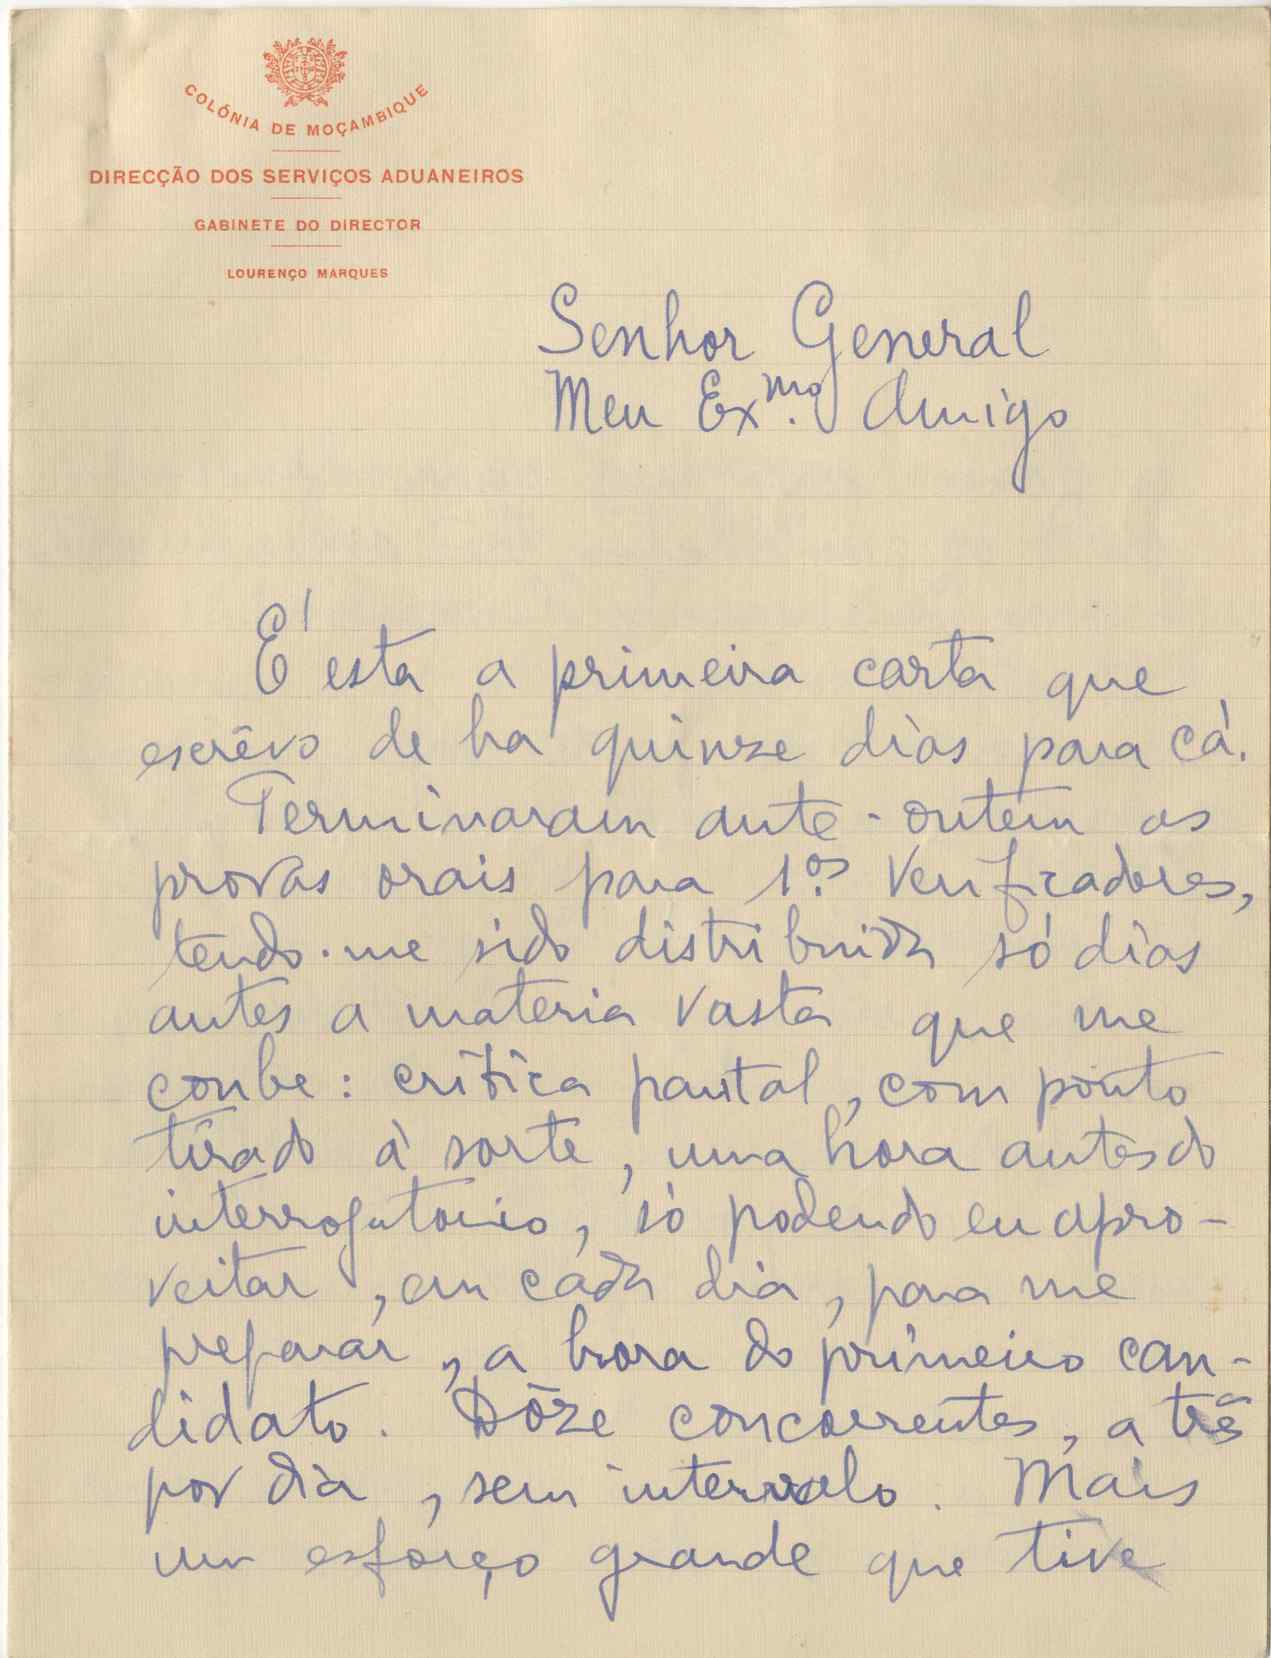 COLÓNIA DE MOÇAMBIQUE
DIRECÇÃO DOS SERVIÇOS ADUANEIROS
GABINETE DO DIRECTOR
LOURENÇO MARQUES
Senhor General
Meu Exmo. Amigo
É esta a primeira carta que
escrêvo de ha quinze dias para cá.
Terminaram ante-ontem as
provas orais para 1.os Verificadores,
tendo-me sido distribuida só dias
antes a materia vasta que me
coube: critica pautal, com ponto
tirado à sorte, uma hora antes do
interrogatorio, só podendo eu apro-
veitar, em cada dia, para me
preparar, a hora do primeiro can-
didato. Dôze concorrentes, a três
por dia, sem intervalo. Mais
um esforço grande que tive